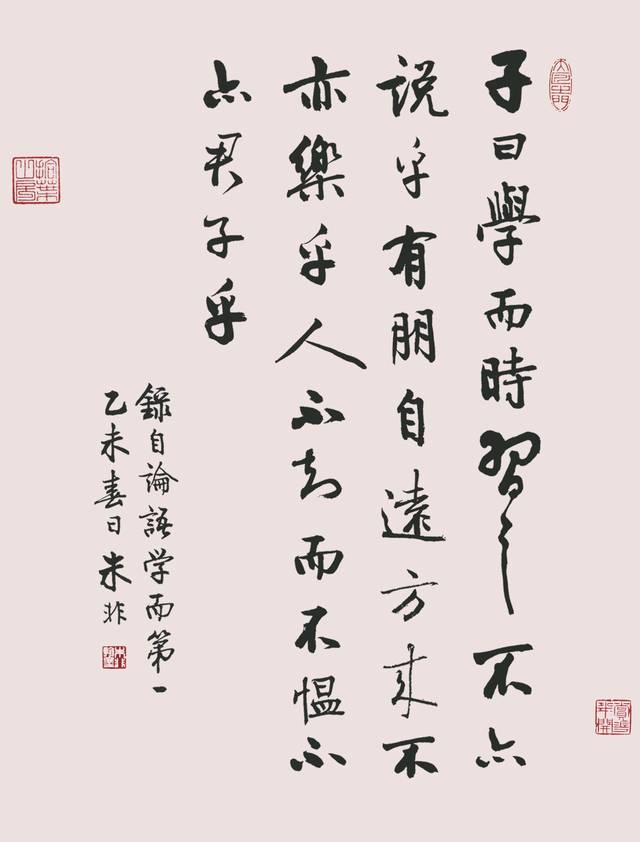 子曰學而時習之不亦
説乎有朋自遠方来不
亦樂乎人不知而不愠不
亦君子乎
録自論語学而第一
乙未春日朱非